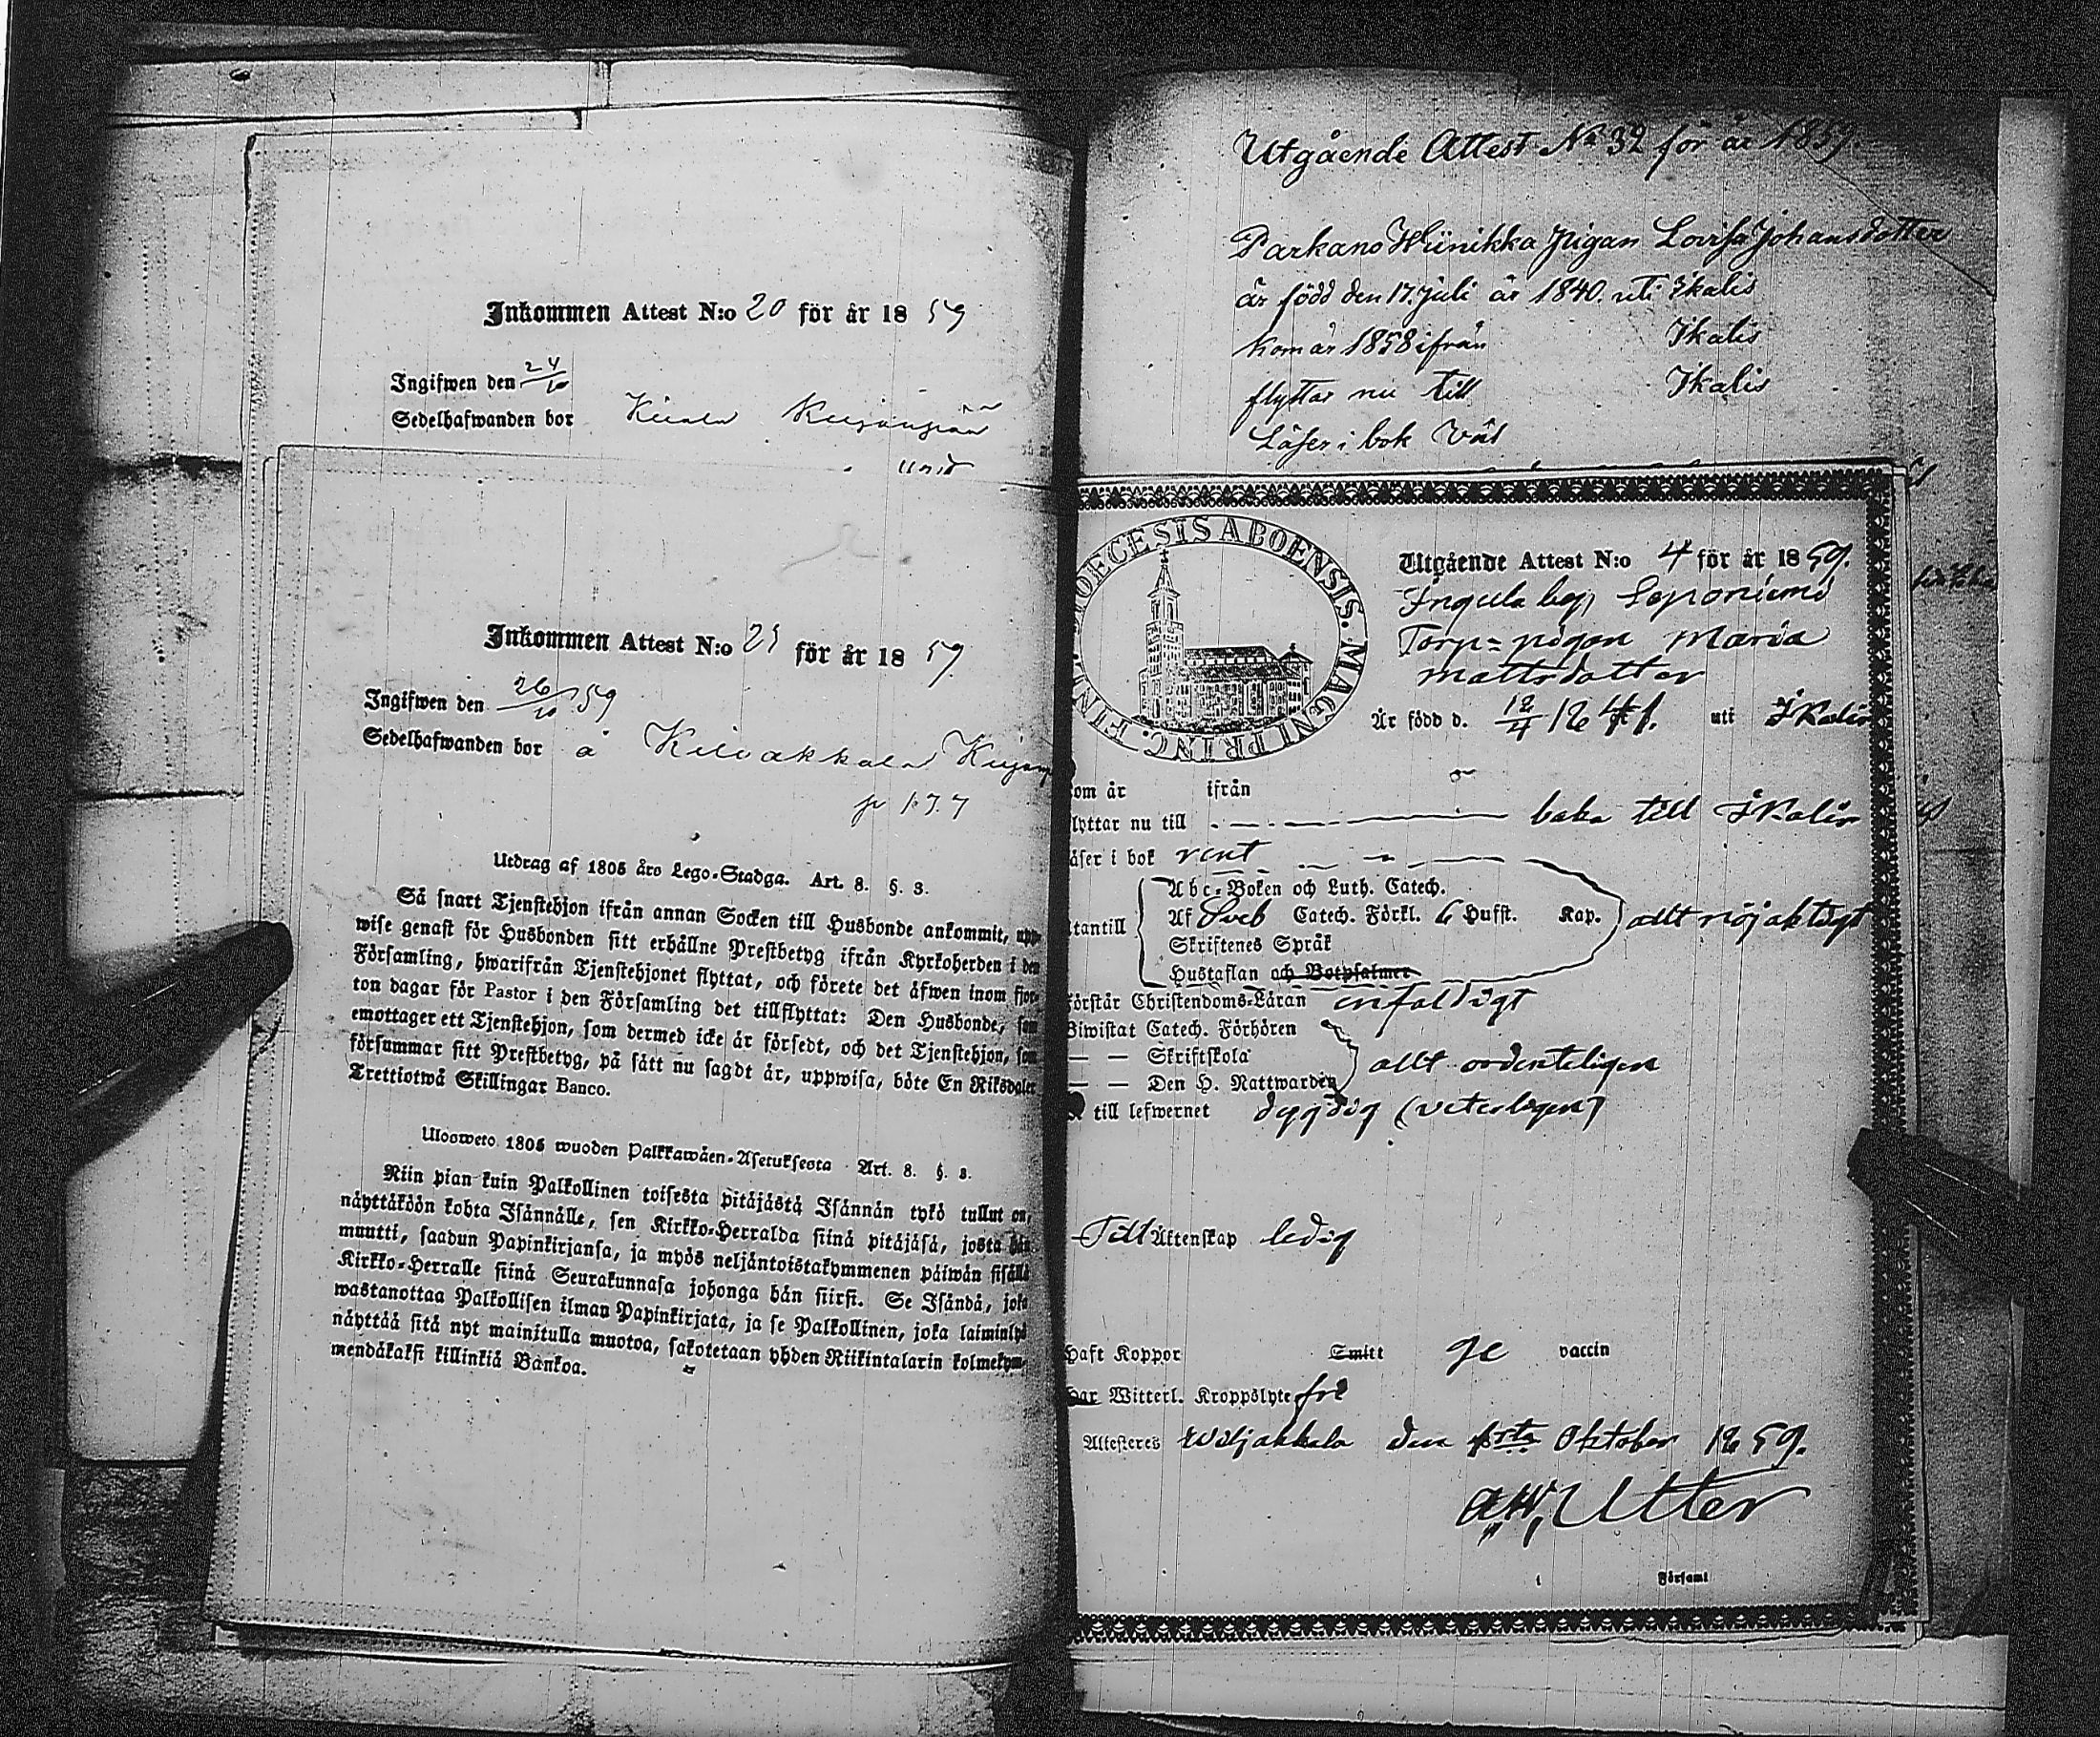 Inkommen Attest N:o 20 för år 1859
Ingifwen den 24/10
Sedelhafwanden bor
Inkommen Attest N:o 21 för år 1859.
Ingifwen den 26/10 59
Sedelhafwanden bor å Kilvakkala
Utdrag af 1805 års Lego-Stadga. Art. 8. §. 3.
Så snart Tjenstehjon ifrån annan Socken till Husbonde ankommit, upp-
wise genast för Husbonden sitt erhållne Prestbetyg ifrån Kyrkoherden i den
Församling, hwarifrån Tjenstehjonet flyttat, och förete det äfwen inom fjor-
ton dagar för Pastor i den Församling det tillflyttat: Den Husbonde, som
emottager ett Tjenstehjon, som dermed icke är försedt, och det Tjenstehjon, som
försummar sitt Prestbetyg, på sätt nu sagdt är, uppwisa, böte En Riksdaler
Trettiotwå Skillingar Banco.
Ulosweto 1805 wuoden Palkkawäen-Asetuksesta Art. 8. §. 3.
Niin pian kuin Palkollinen toisesta pitäjästä Isännän tykö tullut on,
näyttäköön kohta Isännälle, sen Kirkko-Herralda siinä pitäjäsä, josta hän
muutti, saadun Papinkirjansa, ja myös neljäntoistakymmenen päiwän sisällä
Kirkko-Herralle siinä Seurakunnasa johonga hän siirsi. Se Isändä, joka
wastanottaa Palkollisen ilman Papinkirjata, ja se Palkollinen, joka laiminlyö
näyttää sitä nyt mainitulla muotoa, sakotetaan yhden Riikintalarin kolmekym-
mendäkaksi killinkiä Bankoa.
Utgående Attest No 32 för år 1859.
Parkano Hiinikka Pigan Lovisa Johansdotter
är född den 17. juli år 1840. uti Ikalis
kom år 1858 ifrån Ikalis
flyttar nu till Ikalis
Läser i bok väl
DIOECESIS ABOENSIS. MAGNI PRINC. FINL.
Utgående Attest N:o 4 för år 1859.
Leponiemi
Torp=pigan Maria
Mattsdotter
Är född d. 12/4 1841. uti Ikalis
om år ifrån
lyttar nu till baka till Ikalis
äser i bok rent
tantill
Abc-Boken och Luth. Catech.
Af Sveb Catech. Förkl. 6 Hufst. Kap. allt nöjaktigt
Skriftenes Språk
Hustaflan och Botpsalmer
Förstår Christendoms-Läran enfaldigt
Biwistat Catech. Förhören
— — Skriftskola allt ordenteligen
— — Den H. Nattwarden
till lefwernet dygdig (veterligen)
Till Äktenskap ledig
Haft Koppor Smitt ge vaccin
Har Witterl. Kroppslyte fri
Attesteres Wiljakkala den 1sta Oktober 1859.
Utter
Församl